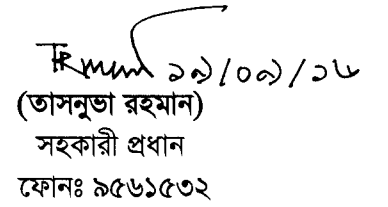 ১৯/০৯/১৬
(তাসনুভা রহমান)
সহকারী প্রধান
ফোনঃ ৯৫৬১৫৩২